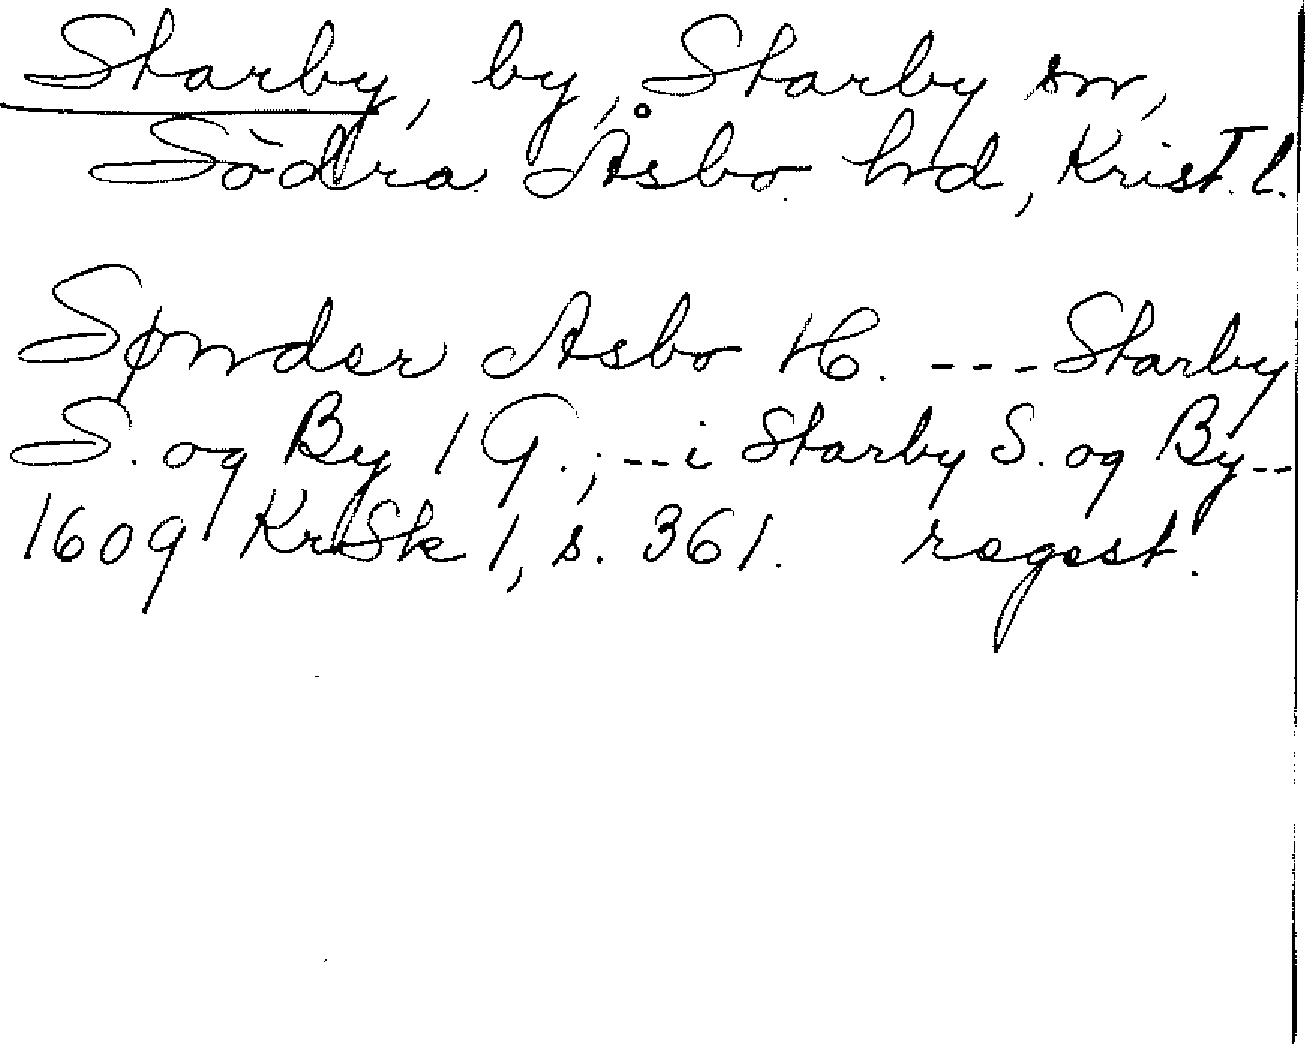 Starby, by, Starby sn,
Södra Åsbo hd, Krist. l.
Sønder Asbo H. --- Starby
S. og By 1 G.; --- i Starby S. og By --
1609 KrSk 1, s. 361. regest.